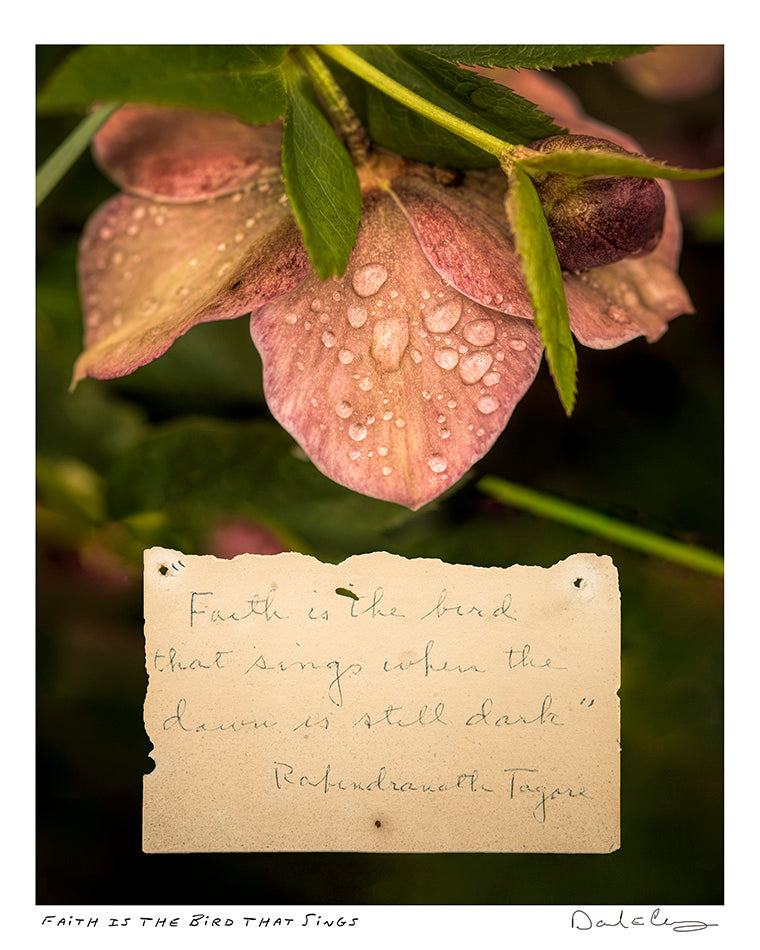 "Faith is the bird
that sings when the
dawn is still dark"
Rabindranath Tagore
FAITH IS THE BIRD THAT SINGS